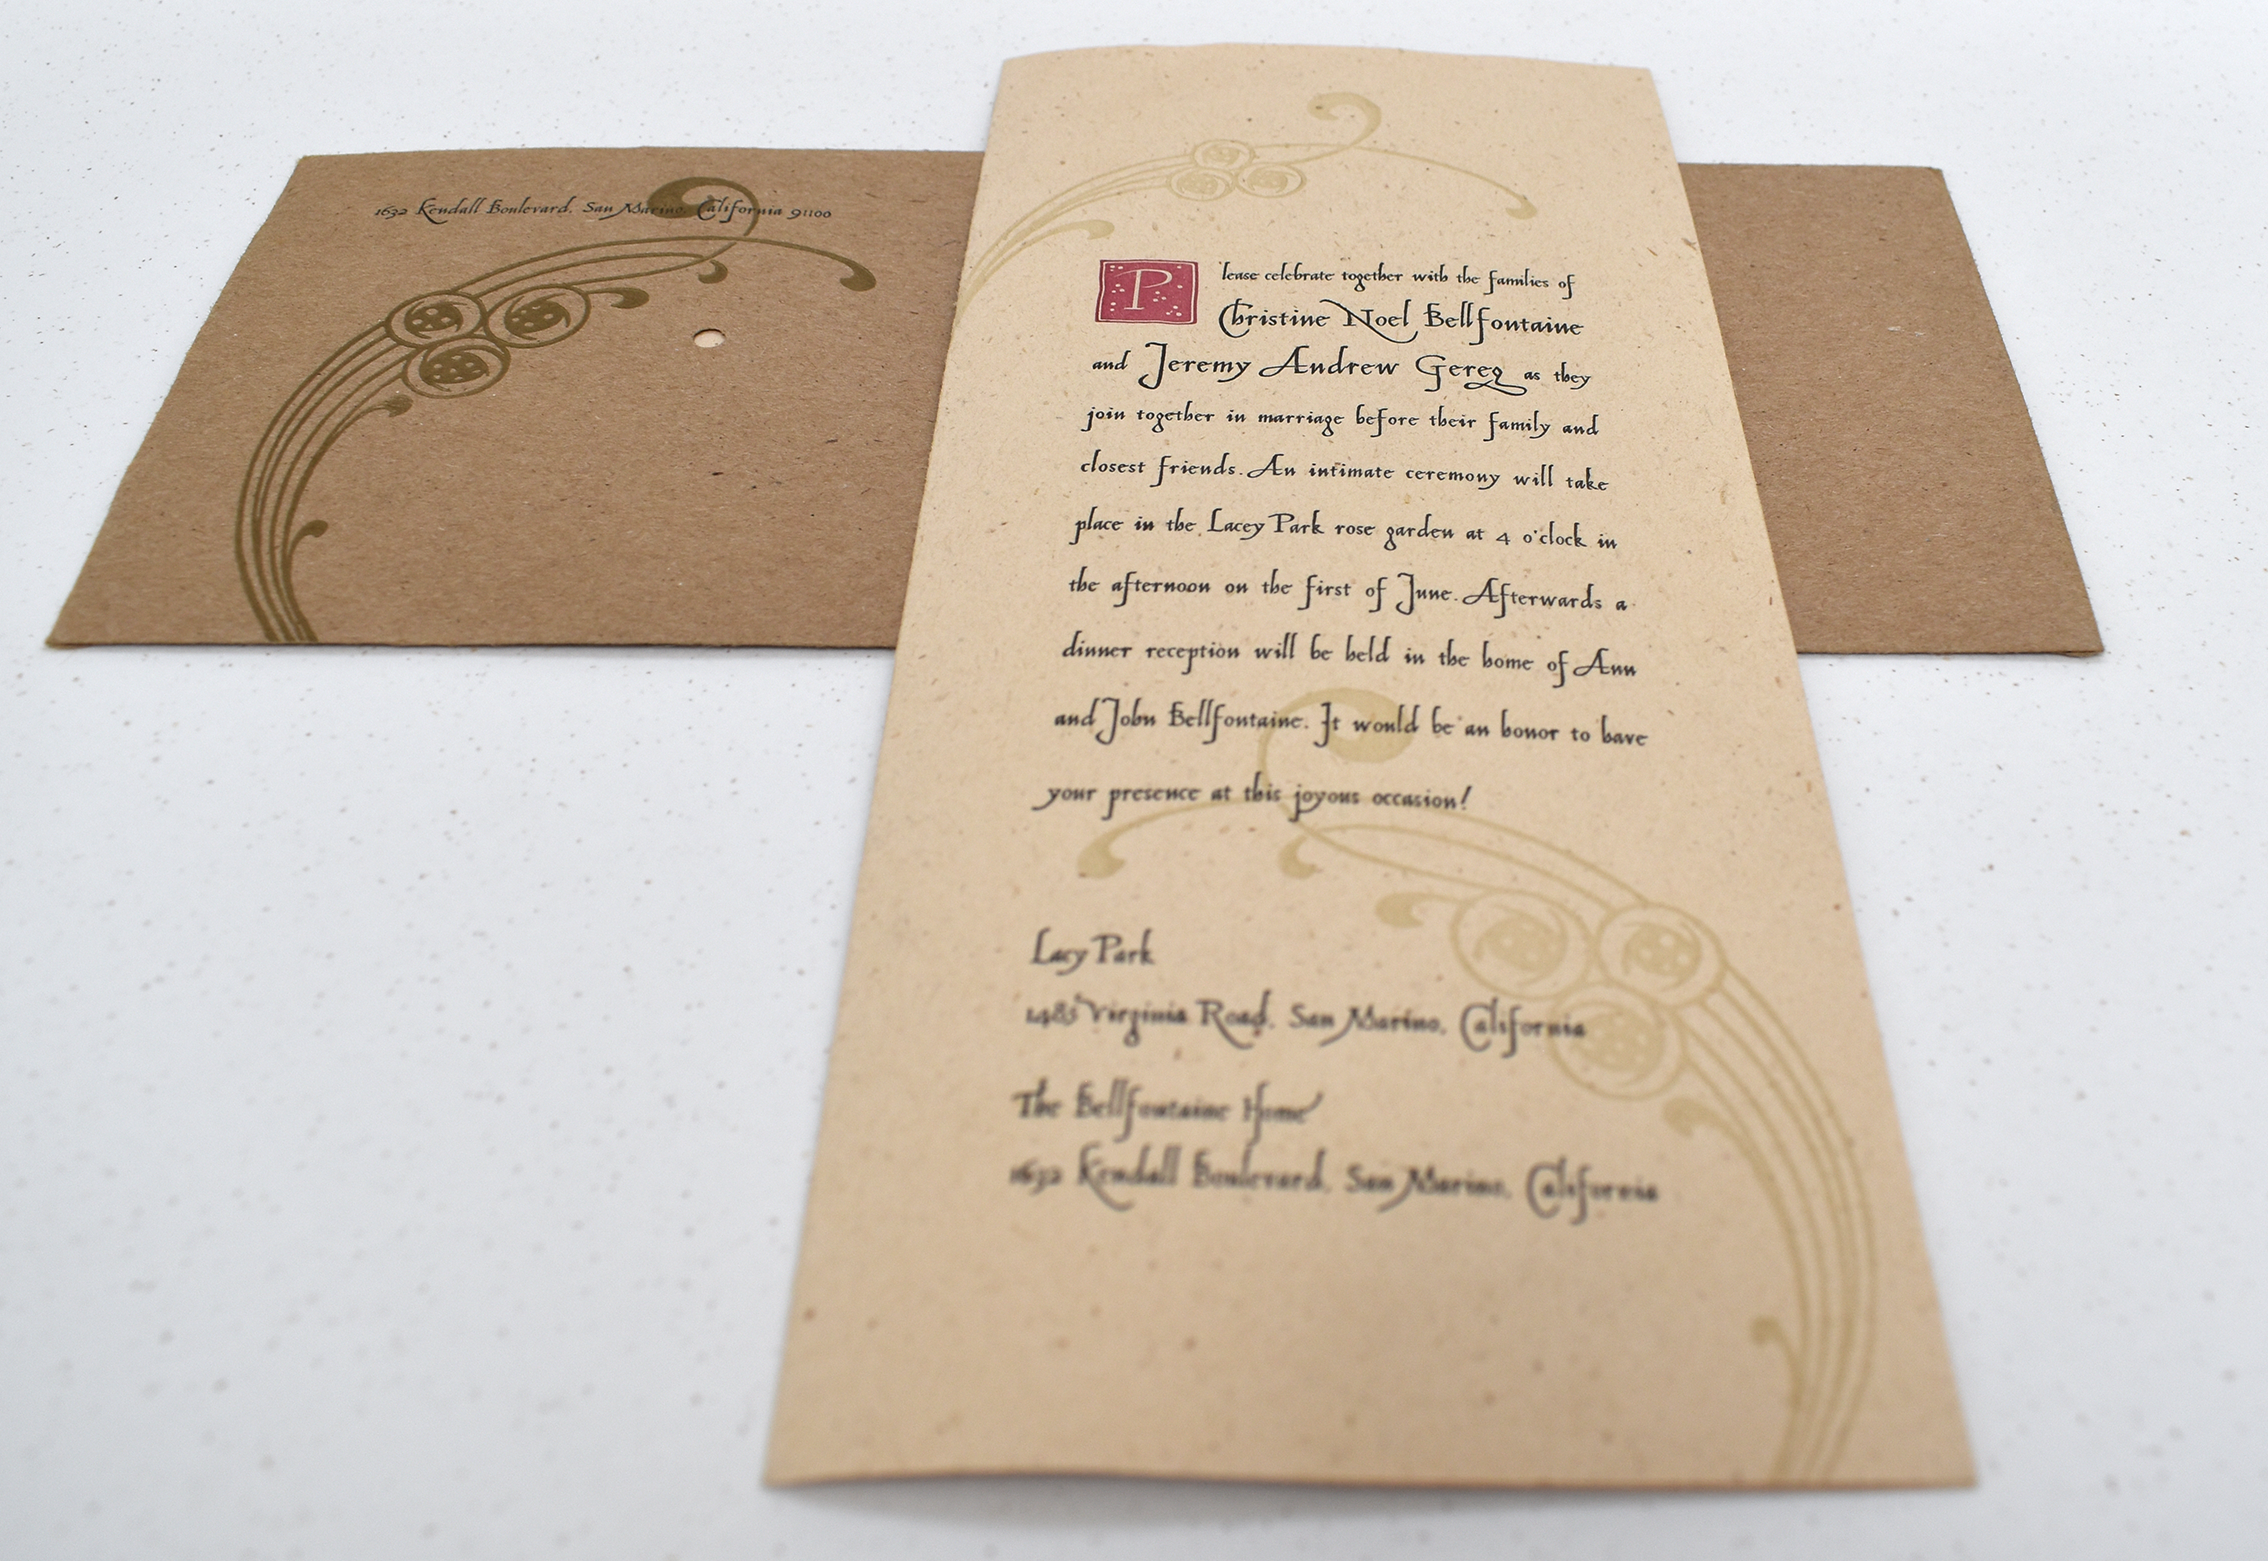 1632 Kendall Boulevard, San Marino, California 91100
Please celebrate together with the families of
Christine Noel Bellfontaine
and Jeremy Andrew Gereg as they
join together in marriage before their family and
closest friends. An intimate ceremony will take
place in the Lacey Park rose garden at 4 o'clock in
the afternoon on the first of June. Afterwards a
dinner reception will be held in the home of Ann
and John Bellfontaine. It would be an honor to have
your presence at this joyous occasion!
Lacy Park
1485 Virginia Road, San Marino, California
The Bellfontaine Home
1632 Kendall Boulevard, San Marino, California